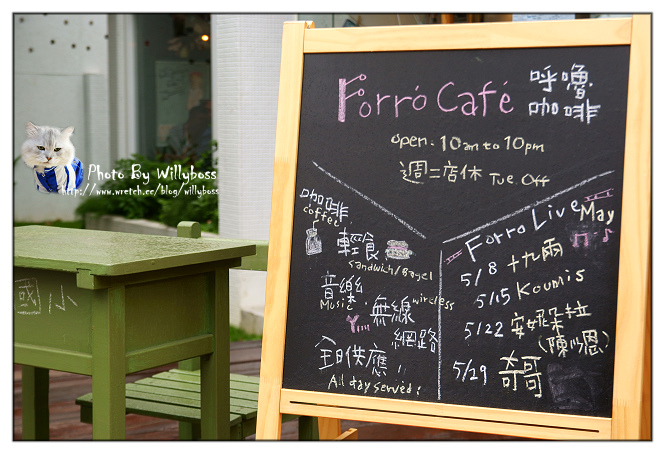 Forró Café 呼嚕咖啡
open. 10am to 10pm
週二店休 Tue Off
咖啡
coffee
輕食
Sandwich/Bagel
音樂
Music
無線 wireless
網路
全日供應
All day served!
Forro Live May
5/8 十九兩
5/15 Koumis
5/22 安娜朵拉
5/29 奇哥
國小
Photo By Willyboss
http://www.wretch.cc/blog/willyboss